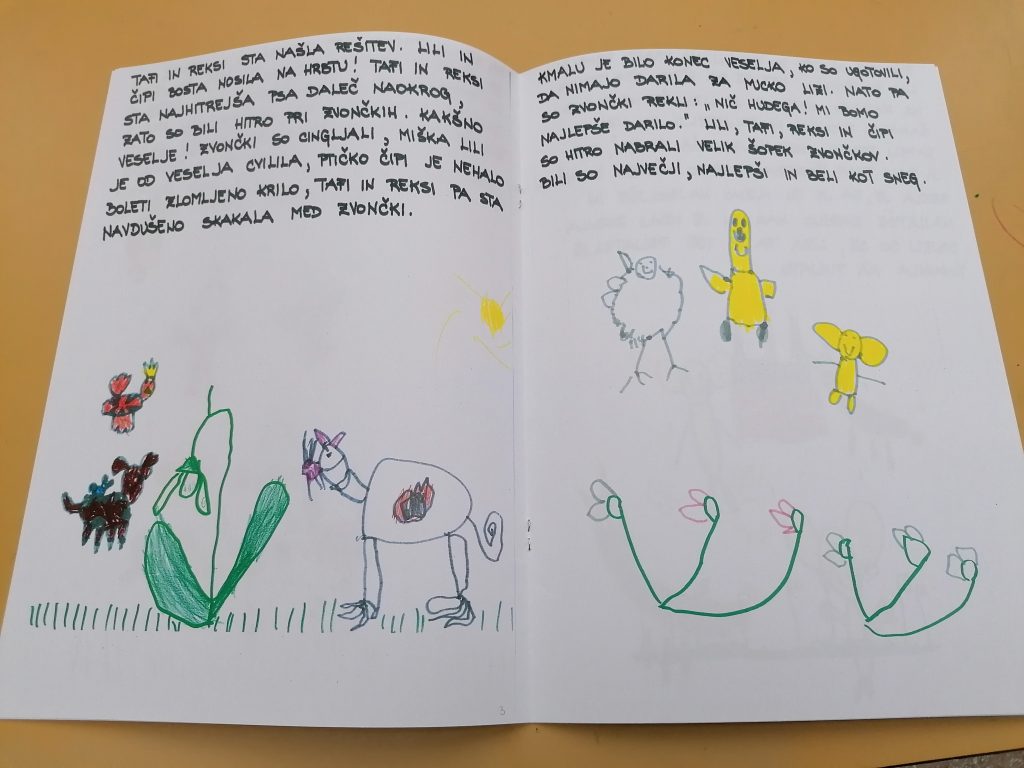 TAPI IN REKSI STA NAŠLA REŠITEV. LILI IN
ČIPI BOSTA NOSILA NA HRBTU! TAPI IN REKSI
STA NAJHITREJŠA PSA DALEČ NAOKROG,
ZATO SO BILI HITRO PRI ZVONČKIH. KAKŠNO
VESELJE! ZVONČKI SO CINGLJALI, MIŠKA LILI
JE OD VESELJA CVILILA, PTIČKO ČIPI JE NEHALO
BOLETI ZLOMLJENO KRILO, TAPI IN REKSI PA STA
NAVDUŠENO SKAKALA MED ZVONČKI.
3
KMALU JE BILO KONEC VESELJA, KO SO UGOTOVILI,
DA NIMAJO DARILA ZA MUCKO LIZI. NATO PA
SO ZVONČKI REKLI: "NIČ HUDEGA! MI BOMO
NAJLEPŠE DARILO." LILI, TAPI, REKSI IN ČIPI
SO HITRO NABRALI VELIK ŠOPEK ZVONČKOV.
BILI SO NAJVEČJI, NAJLEPŠI IN BELI KOT SNEG.